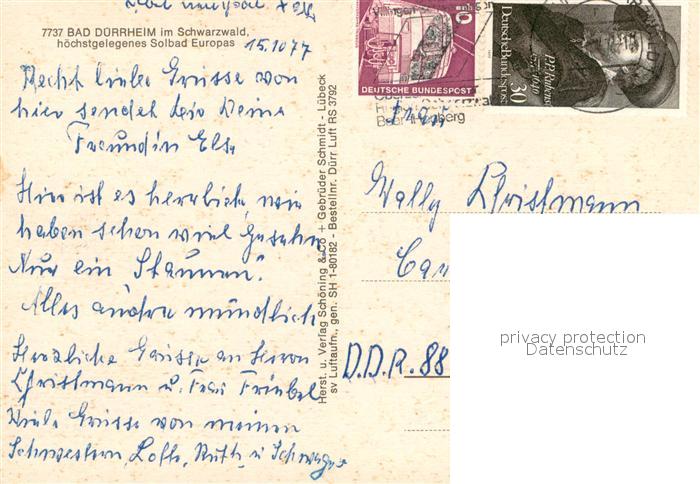 7737 BAD DÜRRHEIM im Schwarzwald,
höchstgelegenes Solbad Europas
15.10 77
Recht liebe Grüsse von
hier sendet dir Deine
Freundin Else
Hier ist es herrlich, wir
haben schon viel gesehen
Nur ein Staunen."
Alles andre mündlich
Herzliche Grüsse an Herrn
Christmann u. Frau Friebel
Viele Grüsse von meinen
Schwestern, Lotte, Ruth, u Schwager
Herst. u. Verlag Schöning & Co + Gebrüder Schmidt - Lübeck
sv Luftaufn., gen. SH 1-80182 - Bestellnr. Dürr Luft RS 3792
10
DEUTSCHE BUNDESPOST
P.P. Rubens
1577-1640
Deutsche Bundespost
30
Wally Christmann
D.D.R. 88
privacy protection
Datenschutz